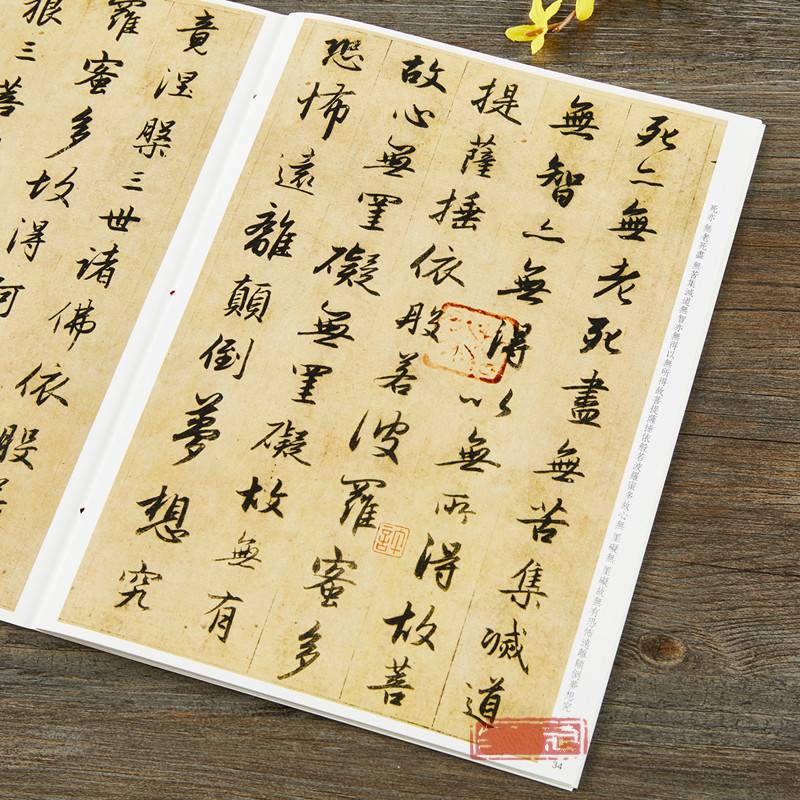 死亦無老死盡無苦集滅道無智亦無得以無所得故菩提薩埵依般若波羅蜜多故心無罣礙無罣礙故無有恐怖遠離顛倒夢想究
死亦無老死盡無苦集滅道
無智亦無得以無所得故菩
提薩埵依般若波羅蜜多
故心無罣礙無罣礙故無有
恐怖遠離顛倒夢想究
竟涅槃三世諸佛依般若
羅蜜多故得阿
藐三菩
34